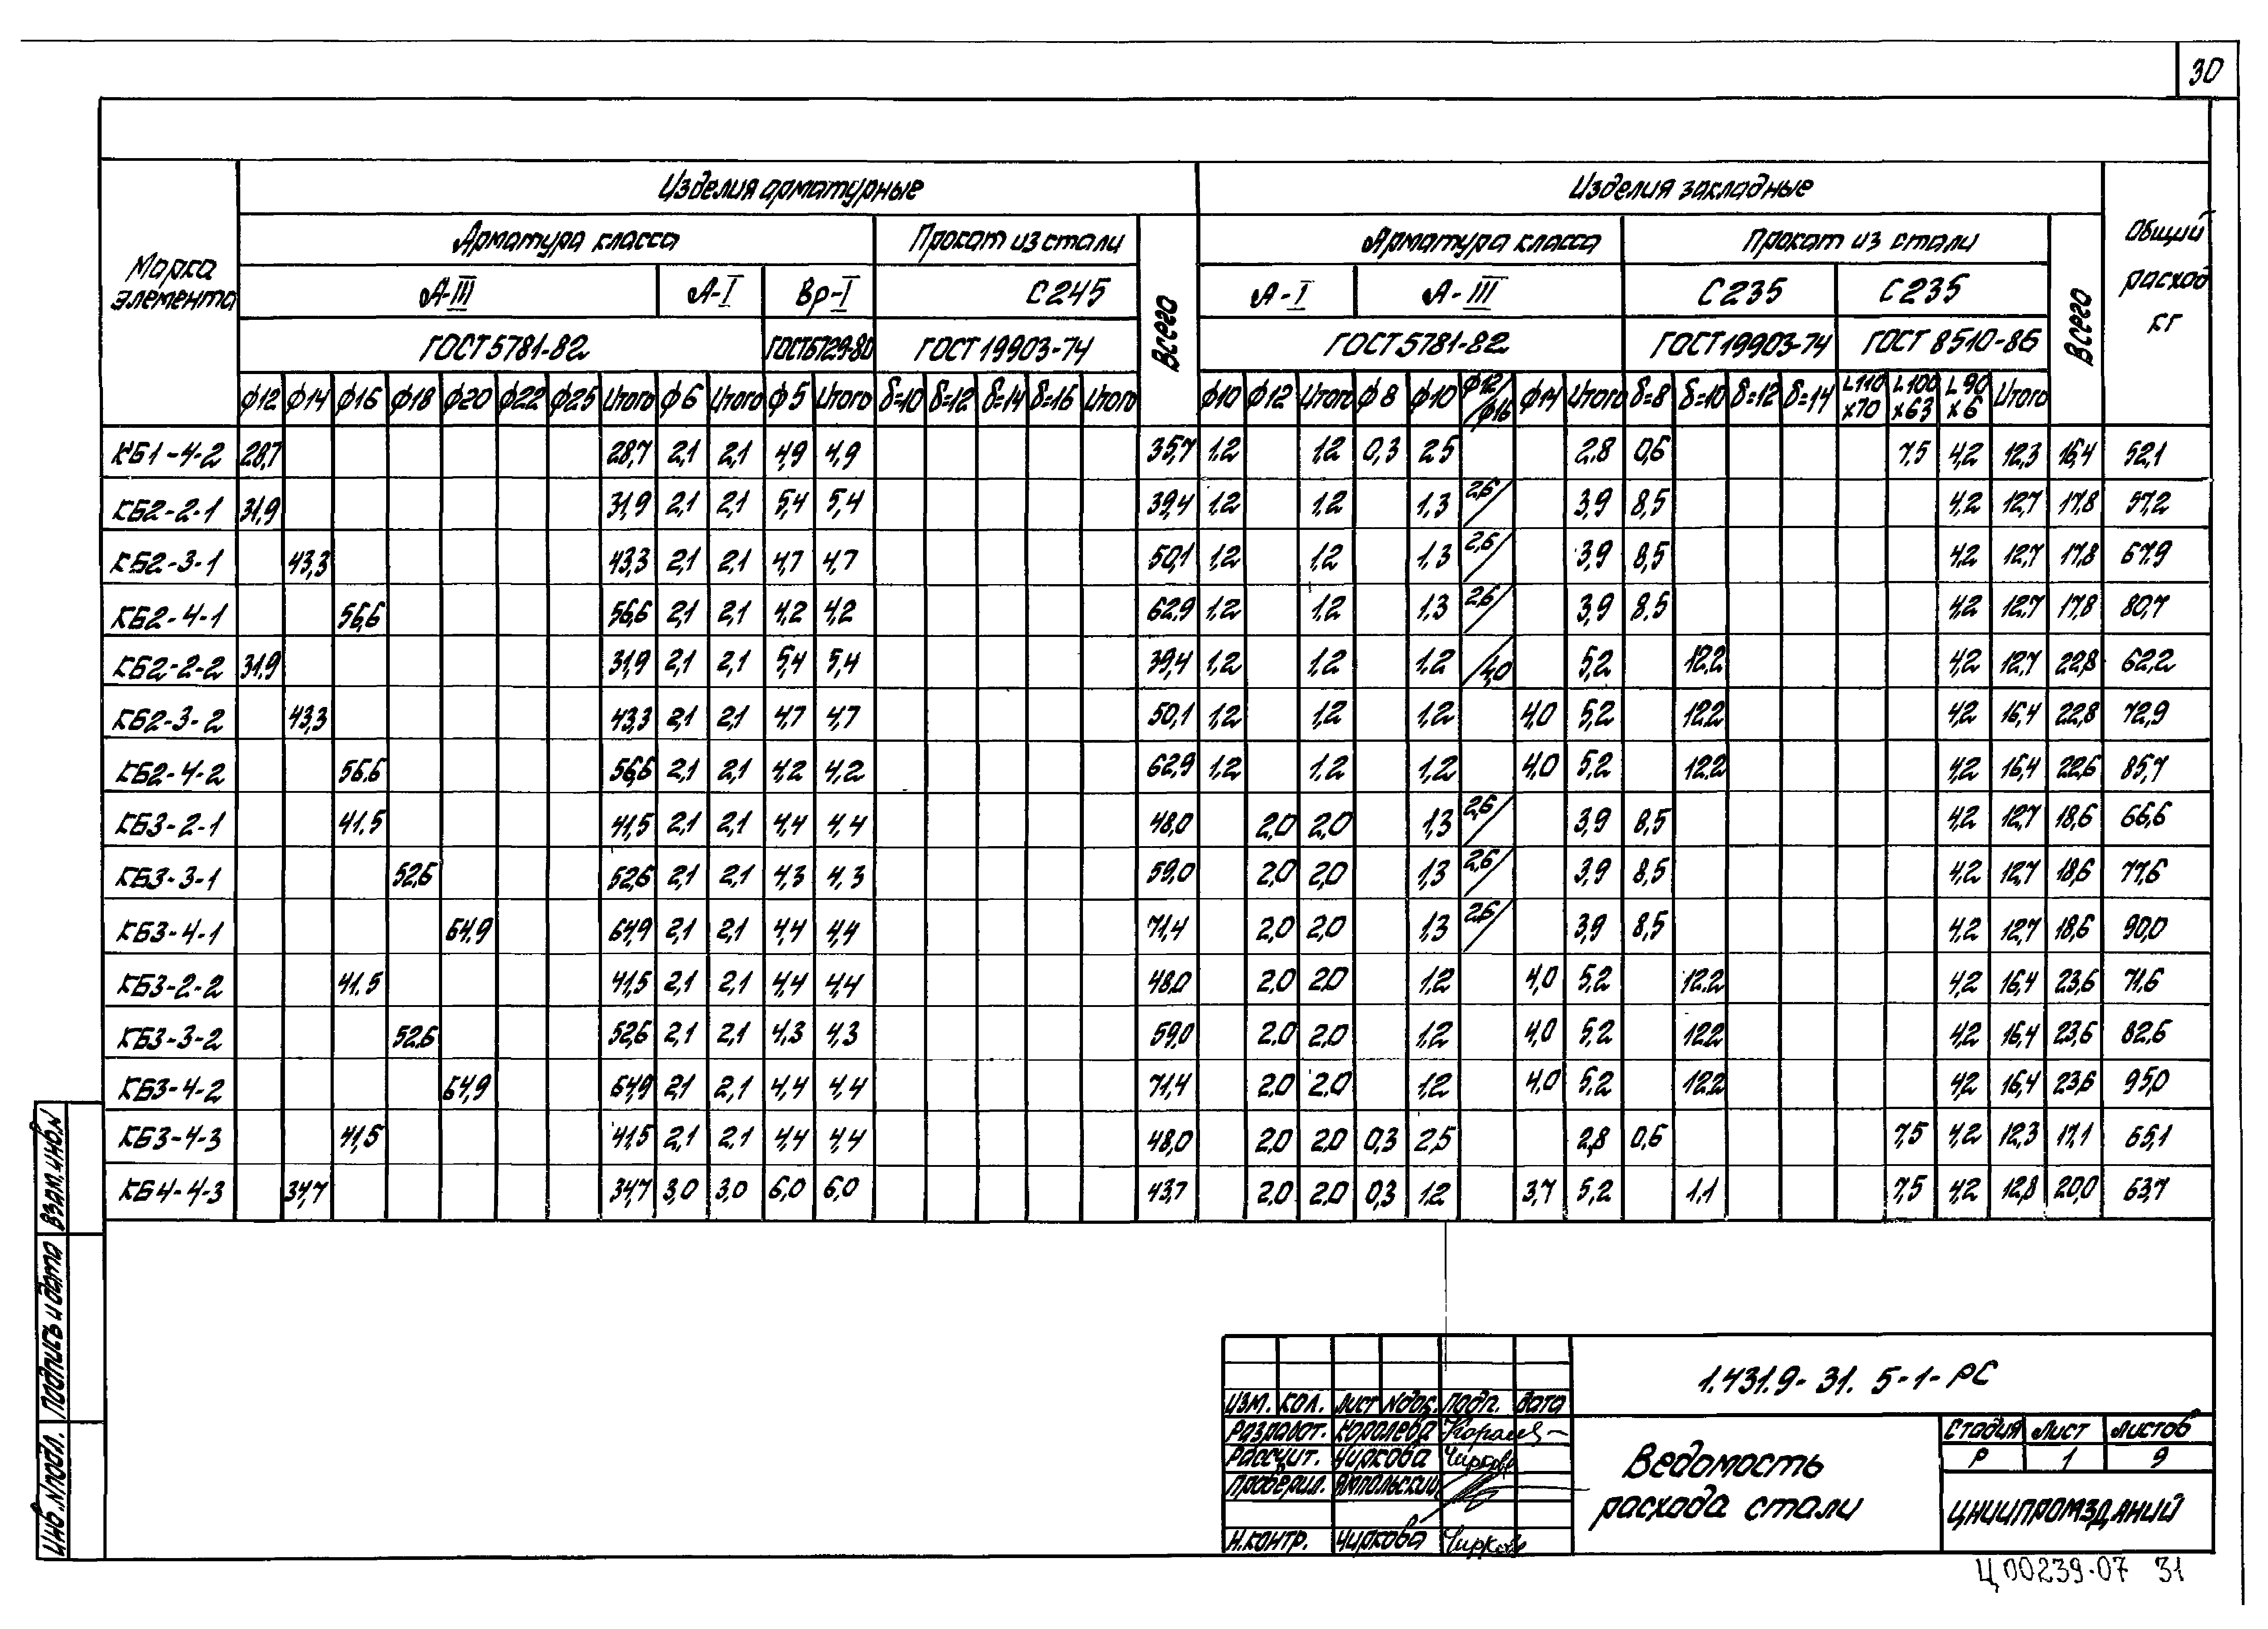 30
Марка элемента
Изделия арматурные
Изделия закладные
Общий расход кг
Арматура класса
Прокат из стали
Всего
Арматура класса
Прокат из стали
Всего
А-III А-I Вр-I С245 А-I А-III С235 С235
ГОСТ 5781-82 ГОСТ 6729-80 ГОСТ 19903-74 ГОСТ 5781-82 ГОСТ 19903-74 ГОСТ 8510-86
ф12 ф14 ф16 ф18 ф20 ф22 ф25 Итого ф6 Итого ф5 Итого δ=10 δ=12 δ=14 δ=16 Итого ф10 ф12 Итого ф8 ф10 ф12/ф16 ф14 Итого δ=8 δ=10 δ=12 δ=14 L110x70 L100x63 L90x6 Итого
КБ1-4-2 28,7 28,7 2,1 2,1 4,9 4,9 35,7 1,2 1,2 0,3 2,5 2,8 0,6 7,5 4,2 12,3 16,4 52,1
КБ2-2-1 31,9 31,9 2,1 2,1 5,4 5,4 39,4 1,2 1,2 1,3 2,6/ 3,9 8,5 4,2 12,7 17,8 57,2
КБ2-3-1 43,3 43,3 2,1 2,1 4,7 4,7 50,1 1,2 1,2 1,3 2,6/ 3,9 8,5 4,2 12,7 17,8 67,9
КБ2-4-1 56,6 56,6 2,1 2,1 4,2 4,2 62,9 1,2 1,2 1,3 2,6/ 3,9 8,5 4,2 12,7 17,8 80,7
КБ2-2-2 31,9 31,9 2,1 2,1 5,4 5,4 39,4 1,2 1,2 1,2 /4,0 5,2 12,2 4,2 12,7 22,8 62,2
КБ2-3-2 43,3 43,3 2,1 2,1 4,7 4,7 50,1 1,2 1,2 1,2 4,0 5,2 12,2 4,2 16,4 22,8 72,9
КБ2-4-2 56,6 56,6 2,1 2,1 4,2 4,2 62,9 1,2 1,2 1,2 4,0 5,2 12,2 4,2 16,4 22,6 85,7
КБ3-2-1 41,5 41,5 2,1 2,1 4,4 4,4 48,0 2,0 2,0 1,3 2,6/ 3,9 8,5 4,2 12,7 18,6 66,6
КБ3-3-1 52,6 52,6 2,1 2,1 4,3 4,3 59,0 2,0 2,0 1,3 2,6/ 3,9 8,5 4,2 12,7 18,6 77,6
КБ3-4-1 64,9 64,9 2,1 2,1 4,4 4,4 71,4 2,0 2,0 1,3 2,6/ 3,9 8,5 4,2 12,7 18,6 90,0
КБ3-2-2 41,5 41,5 2,1 2,1 4,4 4,4 48,0 2,0 2,0 1,2 4,0 5,2 12,2 4,2 16,4 23,6 71,6
КБ3-3-2 52,6 52,6 2,1 2,1 4,3 4,3 59,0 2,0 2,0 1,2 4,0 5,2 12,2 4,2 16,4 23,6 82,6
КБ3-4-2 64,9 64,9 2,1 2,1 4,4 4,4 71,4 2,0 2,0 1,2 4,0 5,2 12,2 4,2 16,4 23,6 95,0
КБ3-4-3 41,5 41,5 2,1 2,1 4,4 4,4 48,0 2,0 2,0 0,3 2,5 2,8 0,6 7,5 4,2 12,3 17,1 65,1
КБ4-4-3 34,7 34,7 3,0 3,0 6,0 6,0 43,7 2,0 2,0 0,3 1,2 3,7 5,2 1,1 7,5 4,2 12,8 20,0 63,7
Взам. инв.N
Подпись и дата
Инв.N подл.
Изм. Кол. Лист Nдок. Подп. Дата
Разработ. Королева Королев
Рассчит. Чиркова Чиркова
Проверил. Ямпольский
Н.контр. Чиркова Чиркова
1.431.9-31. 5-1-РС
Ведомость
расхода стали
Стадия Лист Листов
Р 1 9
ЦНИИПРОМЗДАНИЙ
Ц00239-07 31